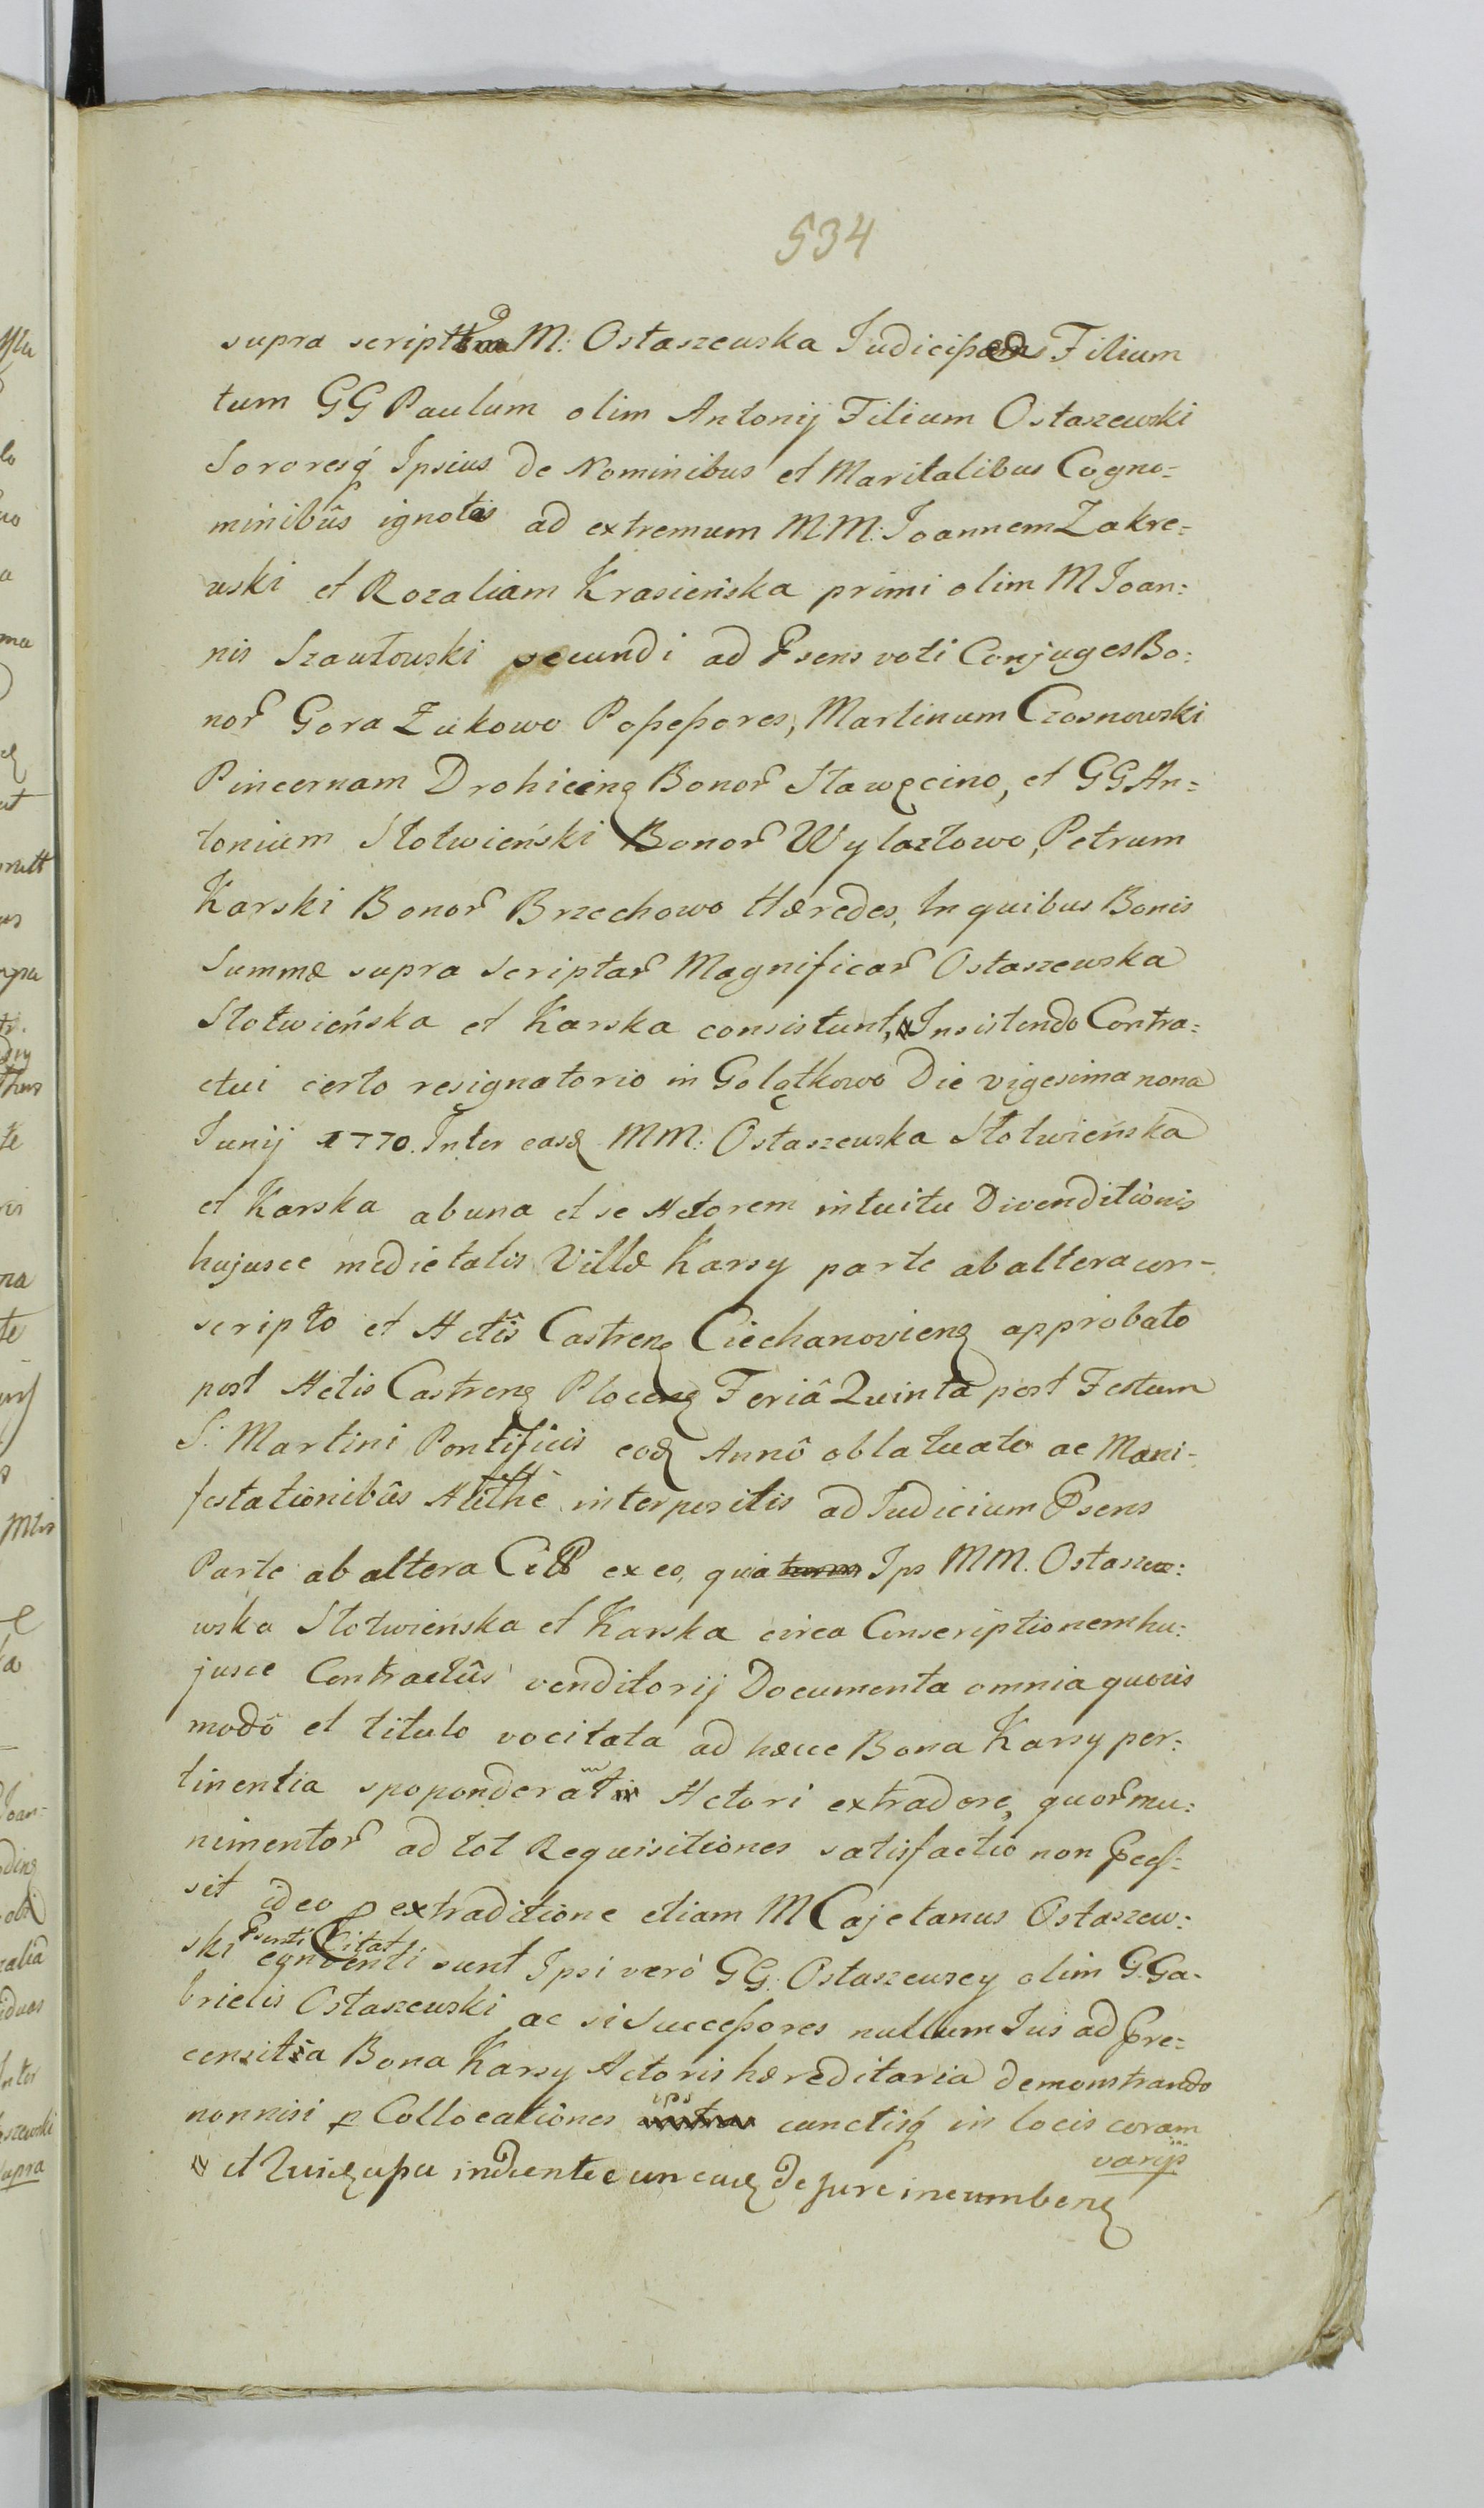 534
supra script M: Ostaszewska Filium
tum GG Paulum olim Antonij Filium Ostaszewski
Sororesq́ Ipsius de Nominibus et Maritalibus Cogno=
minibûs ignotas ad extremum M:M: Joannem Zakre=
wski et Rozaliam Krasieńska primi olim M Joan:
nis Szautowski secundi ad Psens voti Conjuges Bo:
nor Gora Zukowo Possessores, Martinum Czosnowski
Pincernam Drohicinȩ Bonor Sławęcino, et GG An=
tonium Słotwieński Bonor Wylazłowo, Petrum
Karski Bonor Brzechowo Hæredes, In quibus Bonis
Summæ supra Scriptar Magnificar Ostaszewska
Słotwieńska et Karska consistunt, Insistendo Contra=
ctui certo resignatorio in Golątkowo Die vigesima nona
Junij 1770. Inter easd MM: Ostaszewska Słotwieńska
et Karska ab una et se Actorem intuitu Divenditionis
hujusce medietatis Villæ Karsy parte ab altera con-
scripto et Actîs Castrenȩ Ciechanovienȩ approbato
post Actis Castrenȩ Plocenȩ Feriâ Quintâ post Festum
S. Martini Pontificis eod Annô oblatuato ac Mani-
festationibûs interpositis ad Judicium Psens
Parte ab altera ex eo, quia tum Ips MM. Ostasze:
wska Słotwieńska et Karska circa Conscriptionem hu:
jusce Contractûs venditorij Documenta omnia quovis
modô et titulo vocitata ad hæcce Bona Karsy per:
tinentia spoponderant Actori extradere, quor mu:
nimentor ad tot Requisitiones satisfactio non Pces-
sit ideo p extraditione etiam M Cajetanus Ostaszew:
ski Psenti Citat: conventi sunt Ipsi verò GG. Ostaszewscy olim G. Ga-
brielis Ostaszewski ac si Successores nullum Jus ad Pre=
censita Bona Karsy Actoris hæreditaria demonstrando
nonnisi p Collocationes ips cunctisq́ in locis coram
varijs
et indiente de Jure incumbenȩ